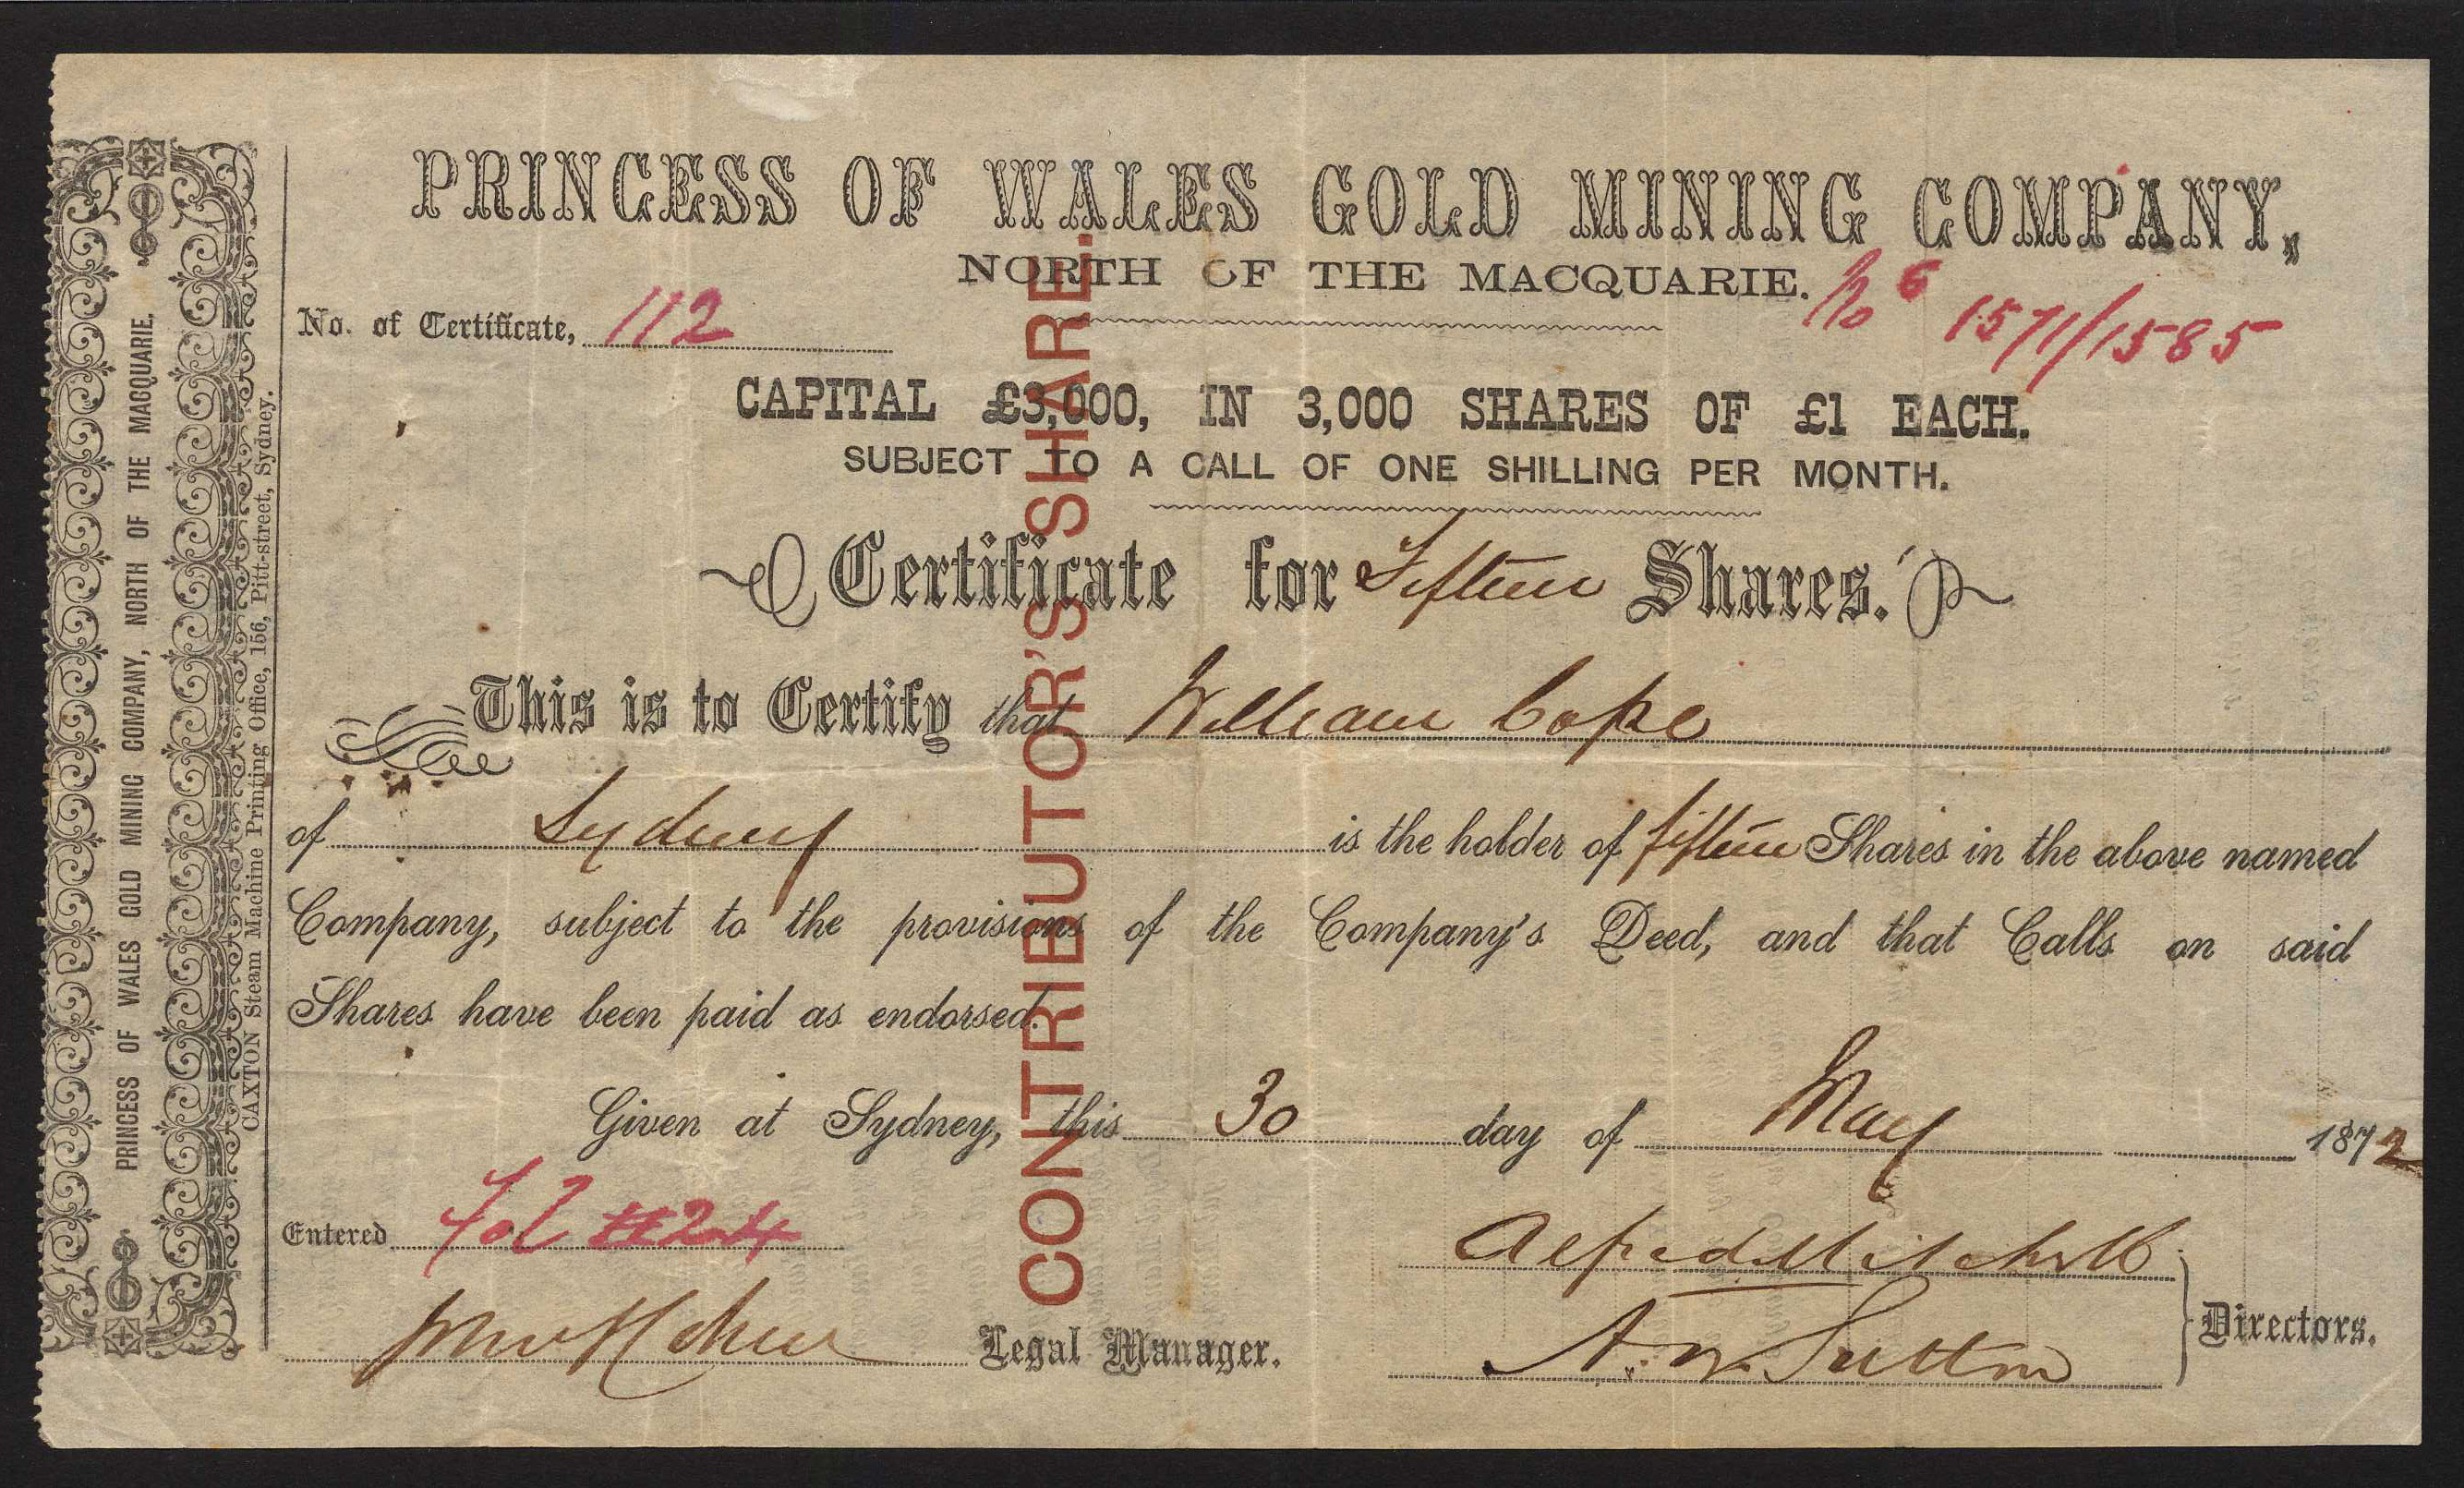 PRINCESS OF WALES GOLD MINING COMPANY,
NORTH OF THE MACQUARIE.
No. of Certificate, 112
Nos 1571/1585
CAPITAL £3,000, IN 3,000 SHARES OF £1 EACH.
SUBJECT TO A CALL OF ONE SHILLING PER MONTH.
Certificate for Fifteen Shares.
This is to Certify that William Cope
of Sydney is the holder of fifteen Shares in the above named
Company, subject to the provisions of the Company's Deed, and that Calls on said
Shares have been paid as endorsed.
Given at Sydney, this 30 day of May 1872
Entered Fol 24
Alfred Mitchell
Legal Manager.
A. W. Sutton
Directors.
CONTRIBUTOR'S SHARE.
PRINCESS OF WALES GOLD MINING COMPANY, NORTH OF THE MACQUARIE.
CAXTON Steam Machine Printing Office, 156, Pitt-street, Sydney.